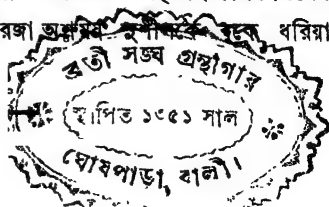 রজা ধরিয়া
ব্রতী সঙ্ঘ গ্রন্থাগার
স্থাপিত ১৩৫১ সাল
ঘোষপাড়া, বালী।